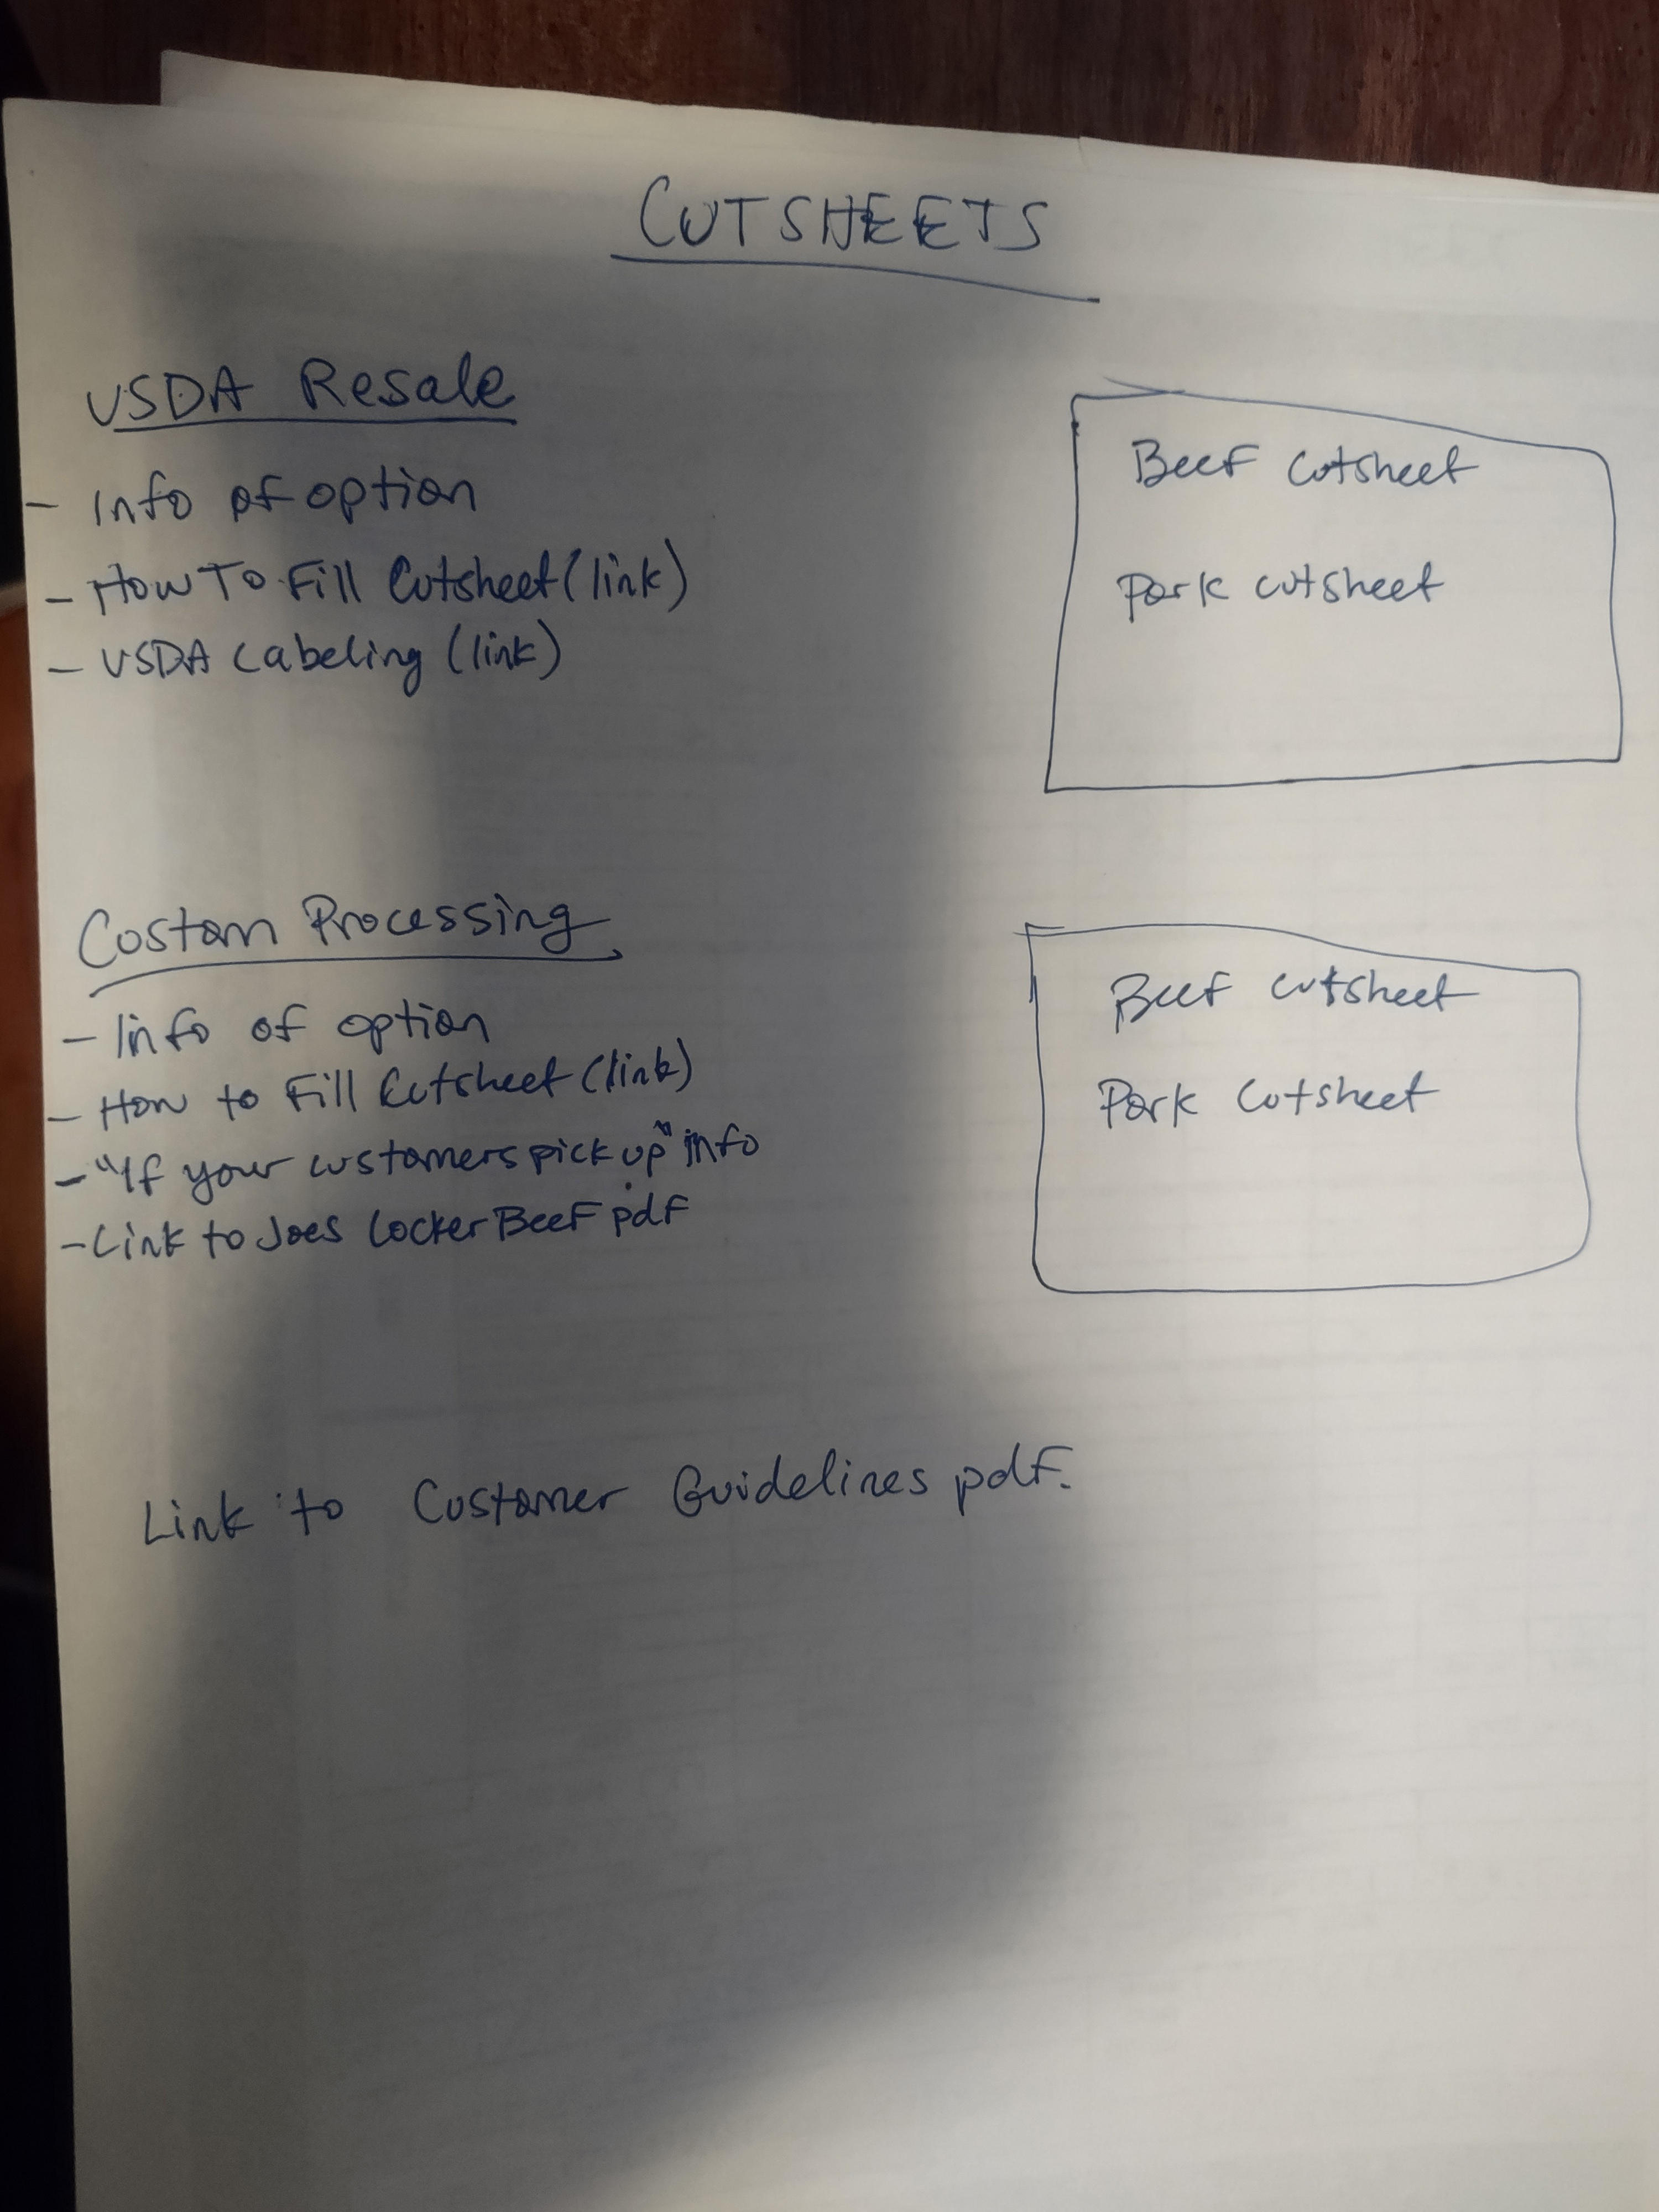 CUTSHEETS
USDA Resale
- Info of option
- How To Fill Cutsheet (link)
- USDA Labeling (link)
Beef Cutsheet
Pork cutsheet
Custom Processing
- Info of option
- How to Fill Cutsheet (link)
- "If your customers pick up" info
- Link to Joes Locker Beef pdf
Beef cutsheet
Pork Cutsheet
Link to Customer Guidelines pdf.